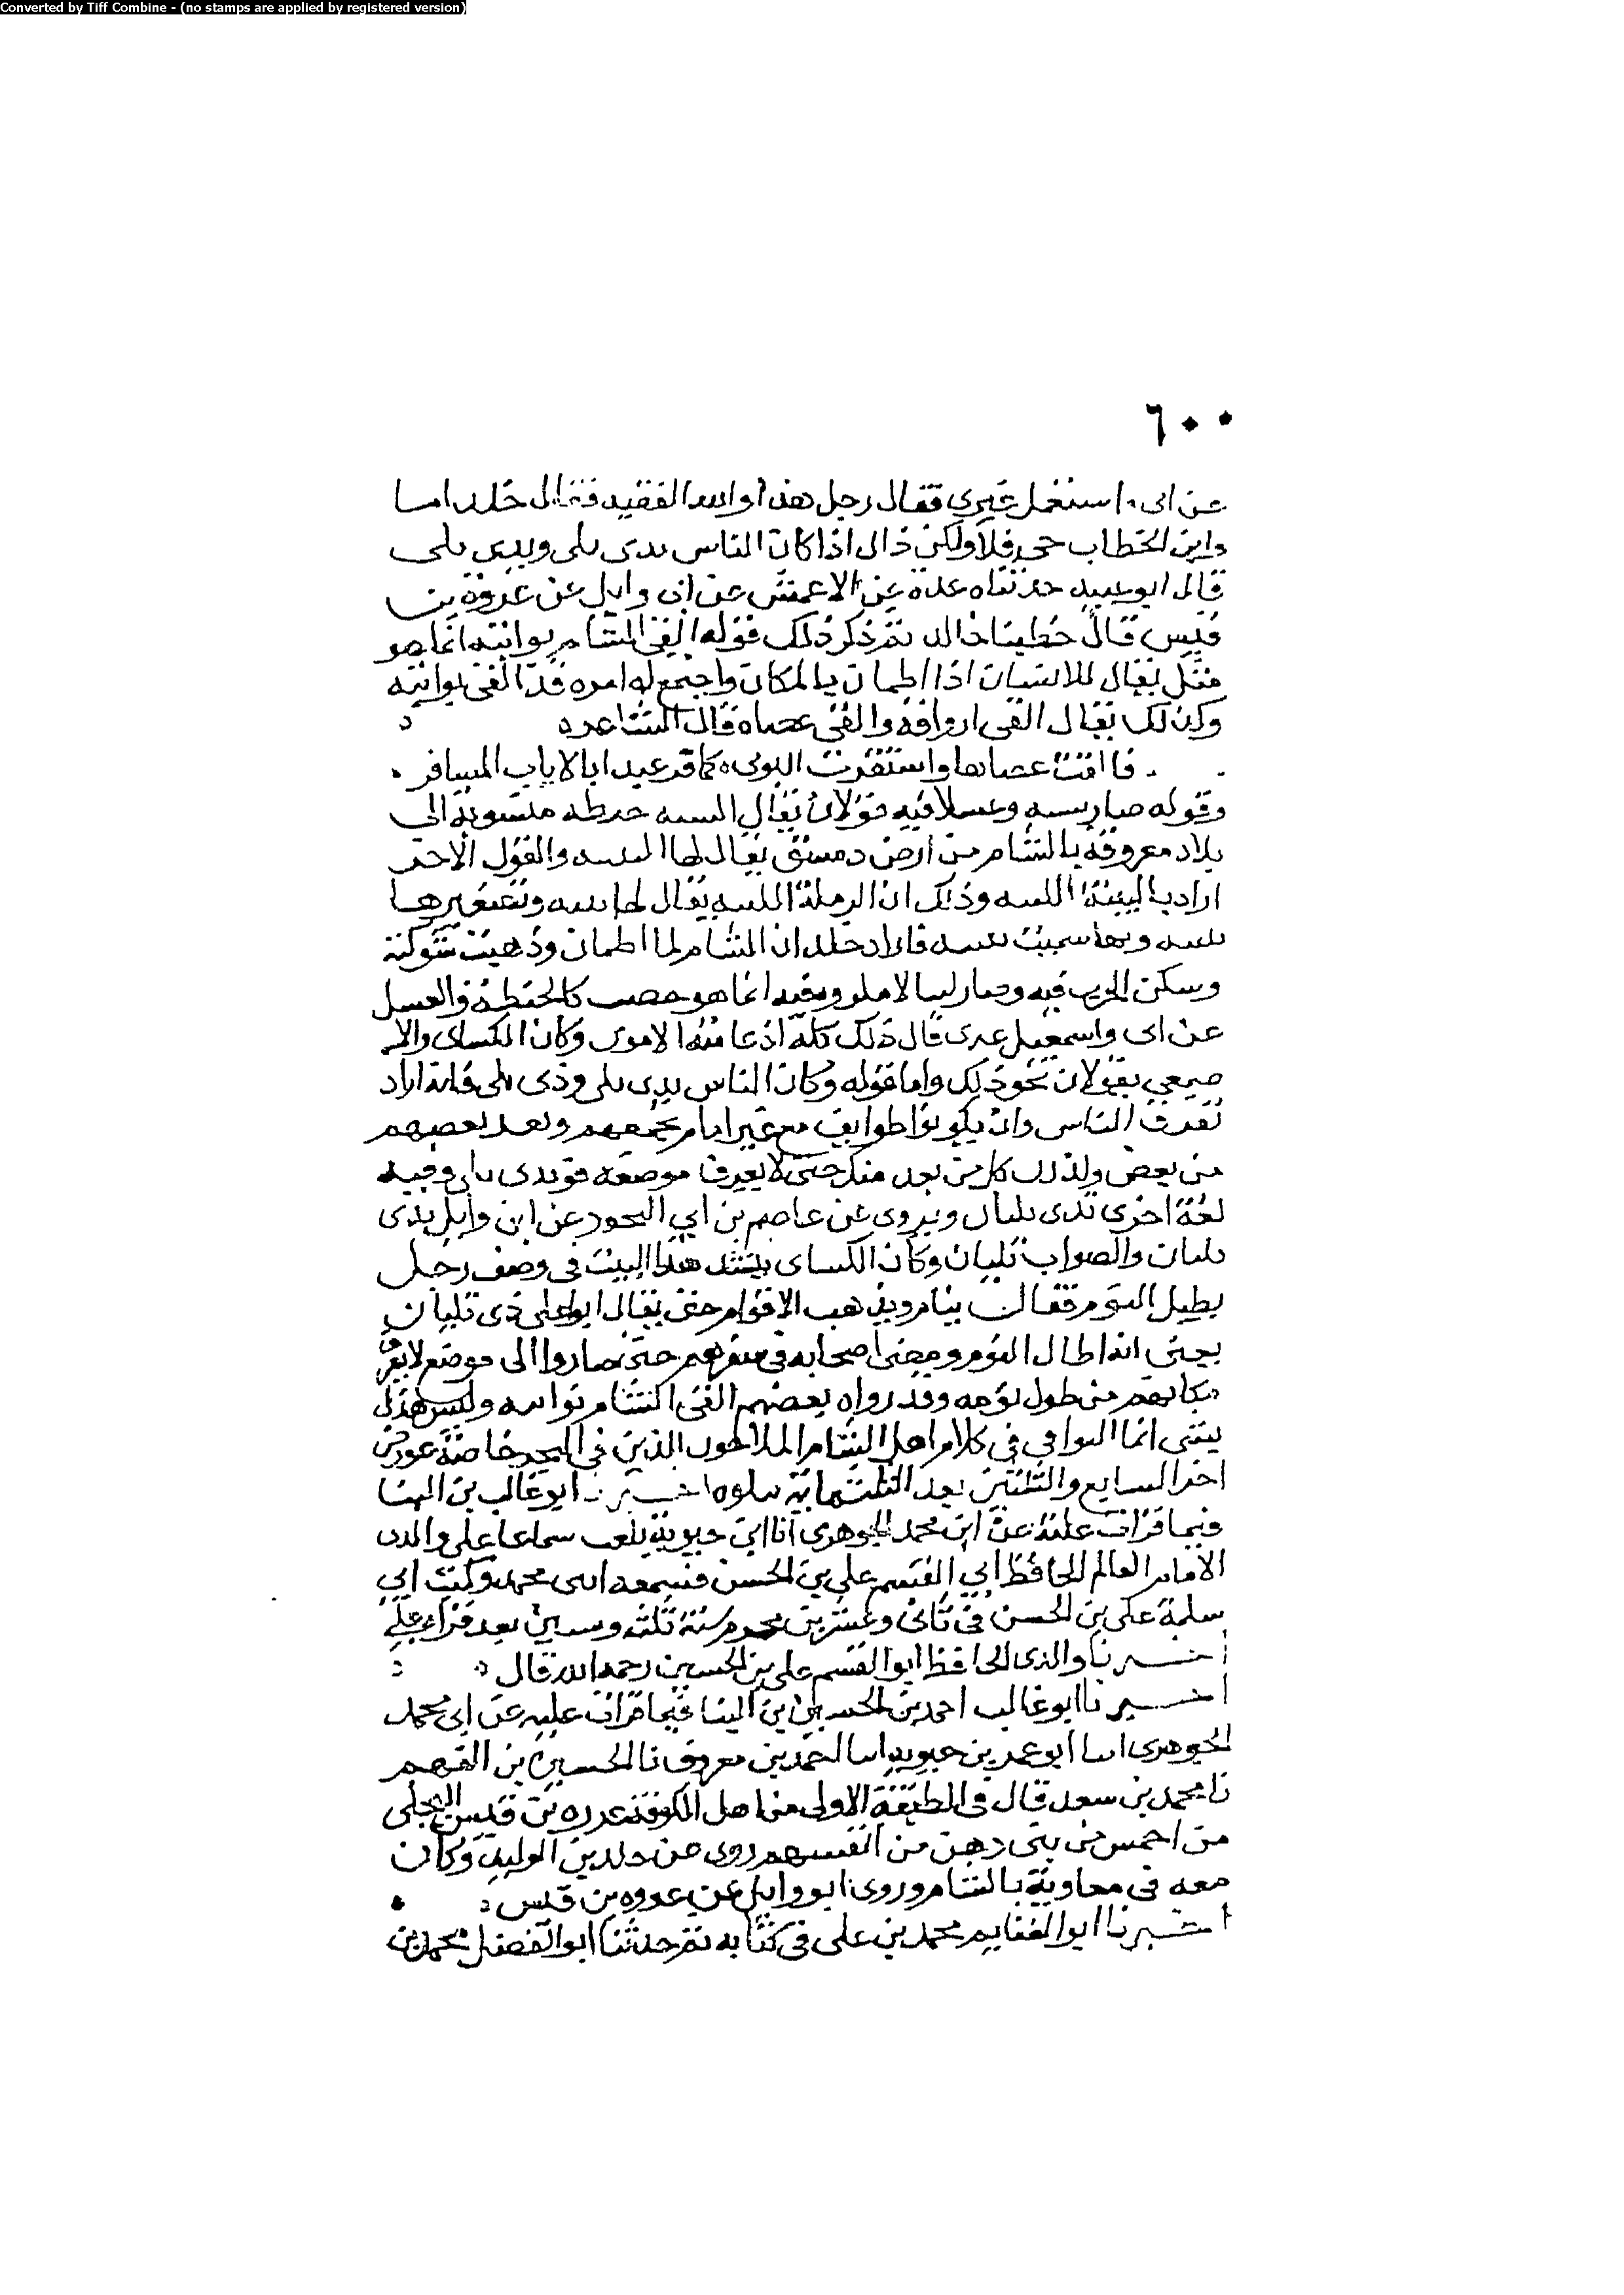 Converted by Tiff Combine - (no stamps are applied by registered version)
٦٠٠
واستعمل غيري فقال رجل هذا والله الفقيه فقال خلد اما
وابن الخطاب حي فلا ولكن ذاك اذا كان الناس بدى بلى وبدى بلى
قال ابو عبيد حدثناه عدة عن الاعمش عن ابي وايل عن عروة بن
قيس قال خطبنا خالد ثم ذكر ذلك قوله القى الشام بوانيه انما هو
مثل يقال للانسان اذا اطمان بالمكان واجتمع له امره قد القى بوانيه
وكذلك يقال القى ارواقه والقى عصاه قال الشاعر
عصاها واستقرت النوى كما قر عينا بالاياب المسافر
وقوله صار بسه وعسلا فيه قولان يقال السه حنطه منسوبة الى
بلاد معروفة بالشام من ارض دمشق يقال لها السه والقول الاخر
اراد بالبثنة اللينه وذلك ان الرملة اللينه يقال لها بثنه وتصغيرها
بثينه وبها سميت بثينه فاراد خلد ان الشام لما اطمان وذهبت شوكته
وسكن الحرب فيه وصار لينا لا مكروه فيه انما هو خصب كالحنطة والعسل
قال ذلك كله اذعا منه الاموى وكان الكساى والا
صمعي يقولان نحو ذلك واما قوله وكان الناس بدى بلى وذى بلى فانه اراد
تفرق الناس وان يكونوا طوايف مع غير امام يجمعهم وبعد بعضهم
من بعض وكذلك كل من بعد منك حتى لا تعرف موضعه فهو بدى بلى وفيه
لغة اخرى بذى بليان ويروى عن عاصم بن ابي النجود عن ابن وايل بذى
بليان والصواب بليان وكان الكساى ينشد هذا البيت في وصف رجل
يطيل النوم فقال ينام ويذهب الاقوام حتى يقال اتوا على ذى بليان
يعنى انه اطال النوم ومضى اصحابه في سفرهم حتى صاروا الى موضع لا يعرف
مكانهم من طول نومه وقد رواه بعضهم القى الشام نواسه وليس هذا
بشى انما النواتي في كلام اهل الشام الملاحون الذين في البحر خاصة عورض
اخر السابع والثلثين بعد الثلثماية يتلوه اخبرنا ابو غالب بن البنا
فيما قرات عليه عن ابي محمد الجوهرى انا ابن حيوية بلغت سماعا على والدي
الامام العالم الحافظ ابي القسم علي بن الحسن فسمعه ابنى محمد وكتب ابي
سلمة علي بن الحسن في ثانى وعشرين محرم سنة ثلثه وستين بعد قراه علي
اخبرنا والدى الحافظ ابو القسم علي بن الحسين رحمه الله قال
اخبرنا ابو غالب احمد بن الحسين بن البنا فيما قرات عليه عن ابي محمد
الجوهرى انبا ابو عمر بن حيويه انبا احمد بن معروف نا الحسين بن الفهم
نا محمد بن سعد قال في الطبقة الاولى من اهل الكوفة عزره بن قيس البجلى
من احمس من بنى دهن من انفسهم روى عن خلد بن الوليد وكان
معه في معاوية بالشام وروى ابو وايل عن عزره بن قيس
اخبرنا ابو الغنايم محمد بن على فى كتابه ثم حدثنا ابو الفضل محمد بن